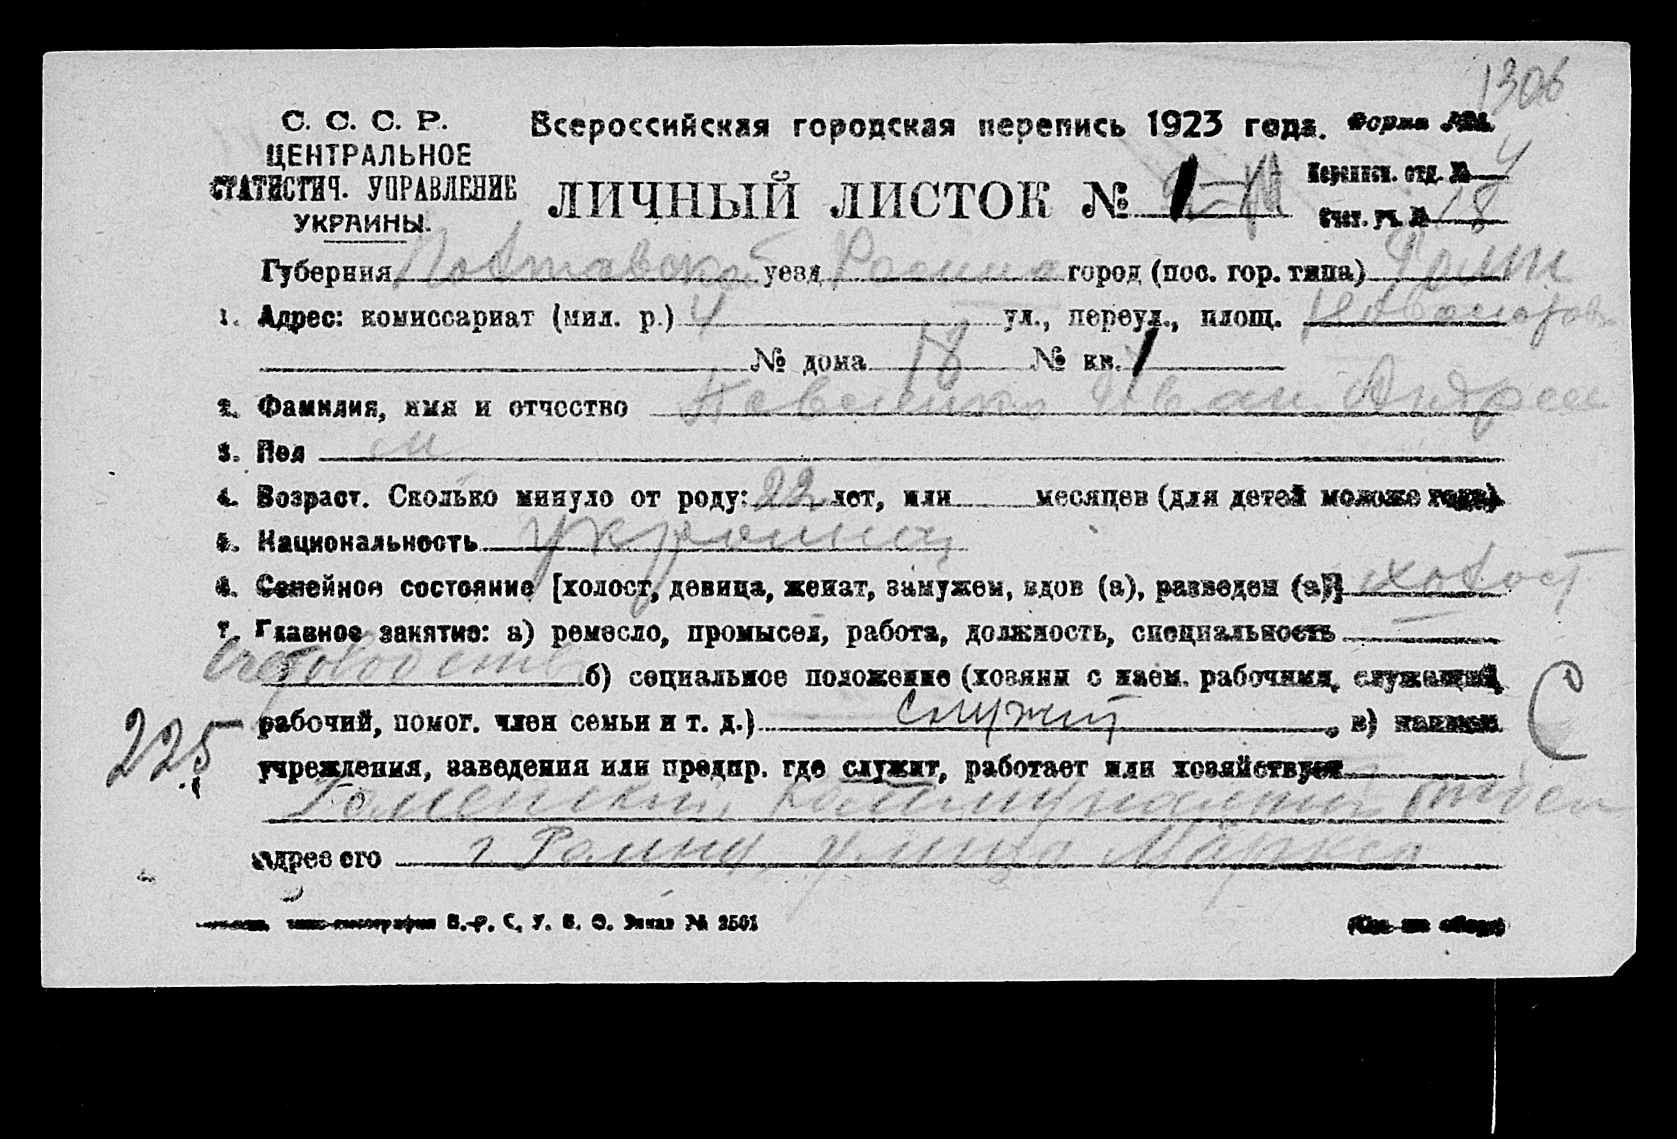 1306
С. С. С. Р.
ЦЕНТРАЛЬНОЕ
СТАТИСТИЧ. УПРАВЛЕНИЕ
УКРАИНЫ.
Всероссийская городская перепись 1923 года. Форма
ЛИЧНЫЙ ЛИСТОК № 1
Переписн. отд. № 4
Счет. уч. № 18
Губерния Полтавская уезд город (пос. гор. типа) Ромны
1. Адрес: комиссариат (мил. р.) 4 ул., переул., площ.
№ дома 18 № кв. 1
2. Фамилия, имя и отчество Иван Андрее
3. Пол м
4. Возраст. Сколько минуло от роду: 22 лет, или месяцев (для детей моложе года)
5. Национальность украинец
6. Семейное состояние [холост, девица, женат, замужем, вдов (а), разведен (а)] холост
7. Главное занятие: а) ремесло, промысел, работа, должность, специальность
Счетоводств б) социальное положение (хозяин с наем. рабочими, служащий,
рабочий, помог. член семьи и т. д.) служит, в) назван. С
225
учреждения, заведения или предпр. где служит, работает или хозяйствует
Роменский коммунальный отдел
Адрес его г Ромны, улица Маркса
С. У. В. О. Заказ № 2501